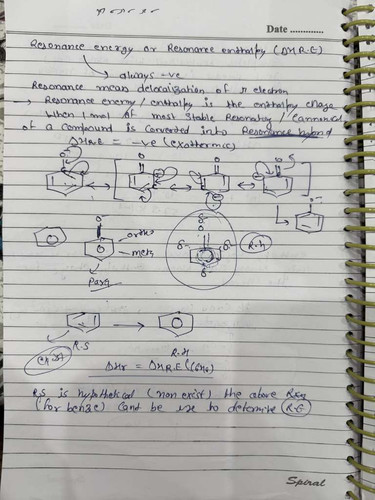 Date
Resonance energy or Resonance enthalpy (ΔHR.E)
always -ve
Resonance mean delocalization of π electron
→ Resonance energy / enthalpy is the enthalpy
when 1 mol of most stable Resonating / Cannonical
of a compound is converted into Resonance hybrid
ΔHR.E = -ve (exothermic)
ortho
meta
para
R.H
R.S
R.H
ΔHr = ΔHR.E
R.S is hypothetical (non exist) the above
(for benze) cant be use to determine R.E
Spiral